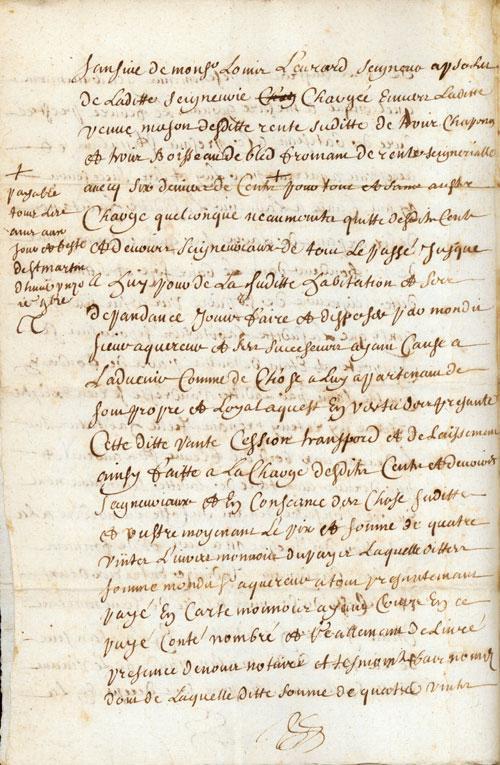 Sansive de monsr Louiss Leurard Seigneur
de Laditte Seigneurie Chargée Enuers Laditte
venue maison desditte rente suditte de trois Chapons
et trois Boisseau de bled fromant de rente seigneurialle
auecq six deniers de Cens + pour tous et sans austre
Charge quelconque neaumointe quitte desdits Cens
et deuoirs Seigneuriaux de tout Le passé Jusque
a Luy jour de La suditte habitation et ses
despandance Jouir faire et desposer par mondit
sieur aquereur et ses successeurs ayant Cause a
Laduenir Comme de Chose a Luy apartenant de
son propre et Loyal aquest En vertu des presante
Cette ditte vante Cession transpord et delaissement
ainsy faitte a La Charge desdits Cens et deuoirs
Seigneuriaux et En Consçance des Chose suditte
et oustre moyenant Le prix et somme de quatre
vints Liures monnoie du payis Laquelle ditte
somme mondit sr aquereur a tout presantemant
payé En Carte monnoie ayant Cours En ce
payis Conté nombré et reallement deLiuré
presence de nous notaire et tesmoins
dont de Laquelle ditte somme de quatre vints
+
payable
tous Les
ans au
jour et feste
de st martin
d'huict unze
9bre